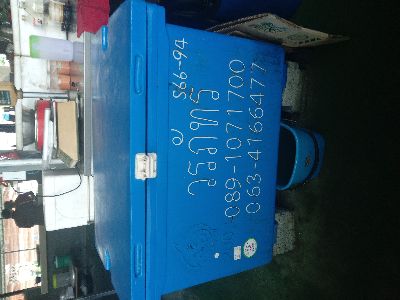 S66-94
วรภัทร์
089-1071700
063-4166477